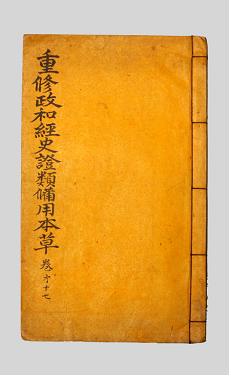 重修政和經史證類備用本草
卷第十七